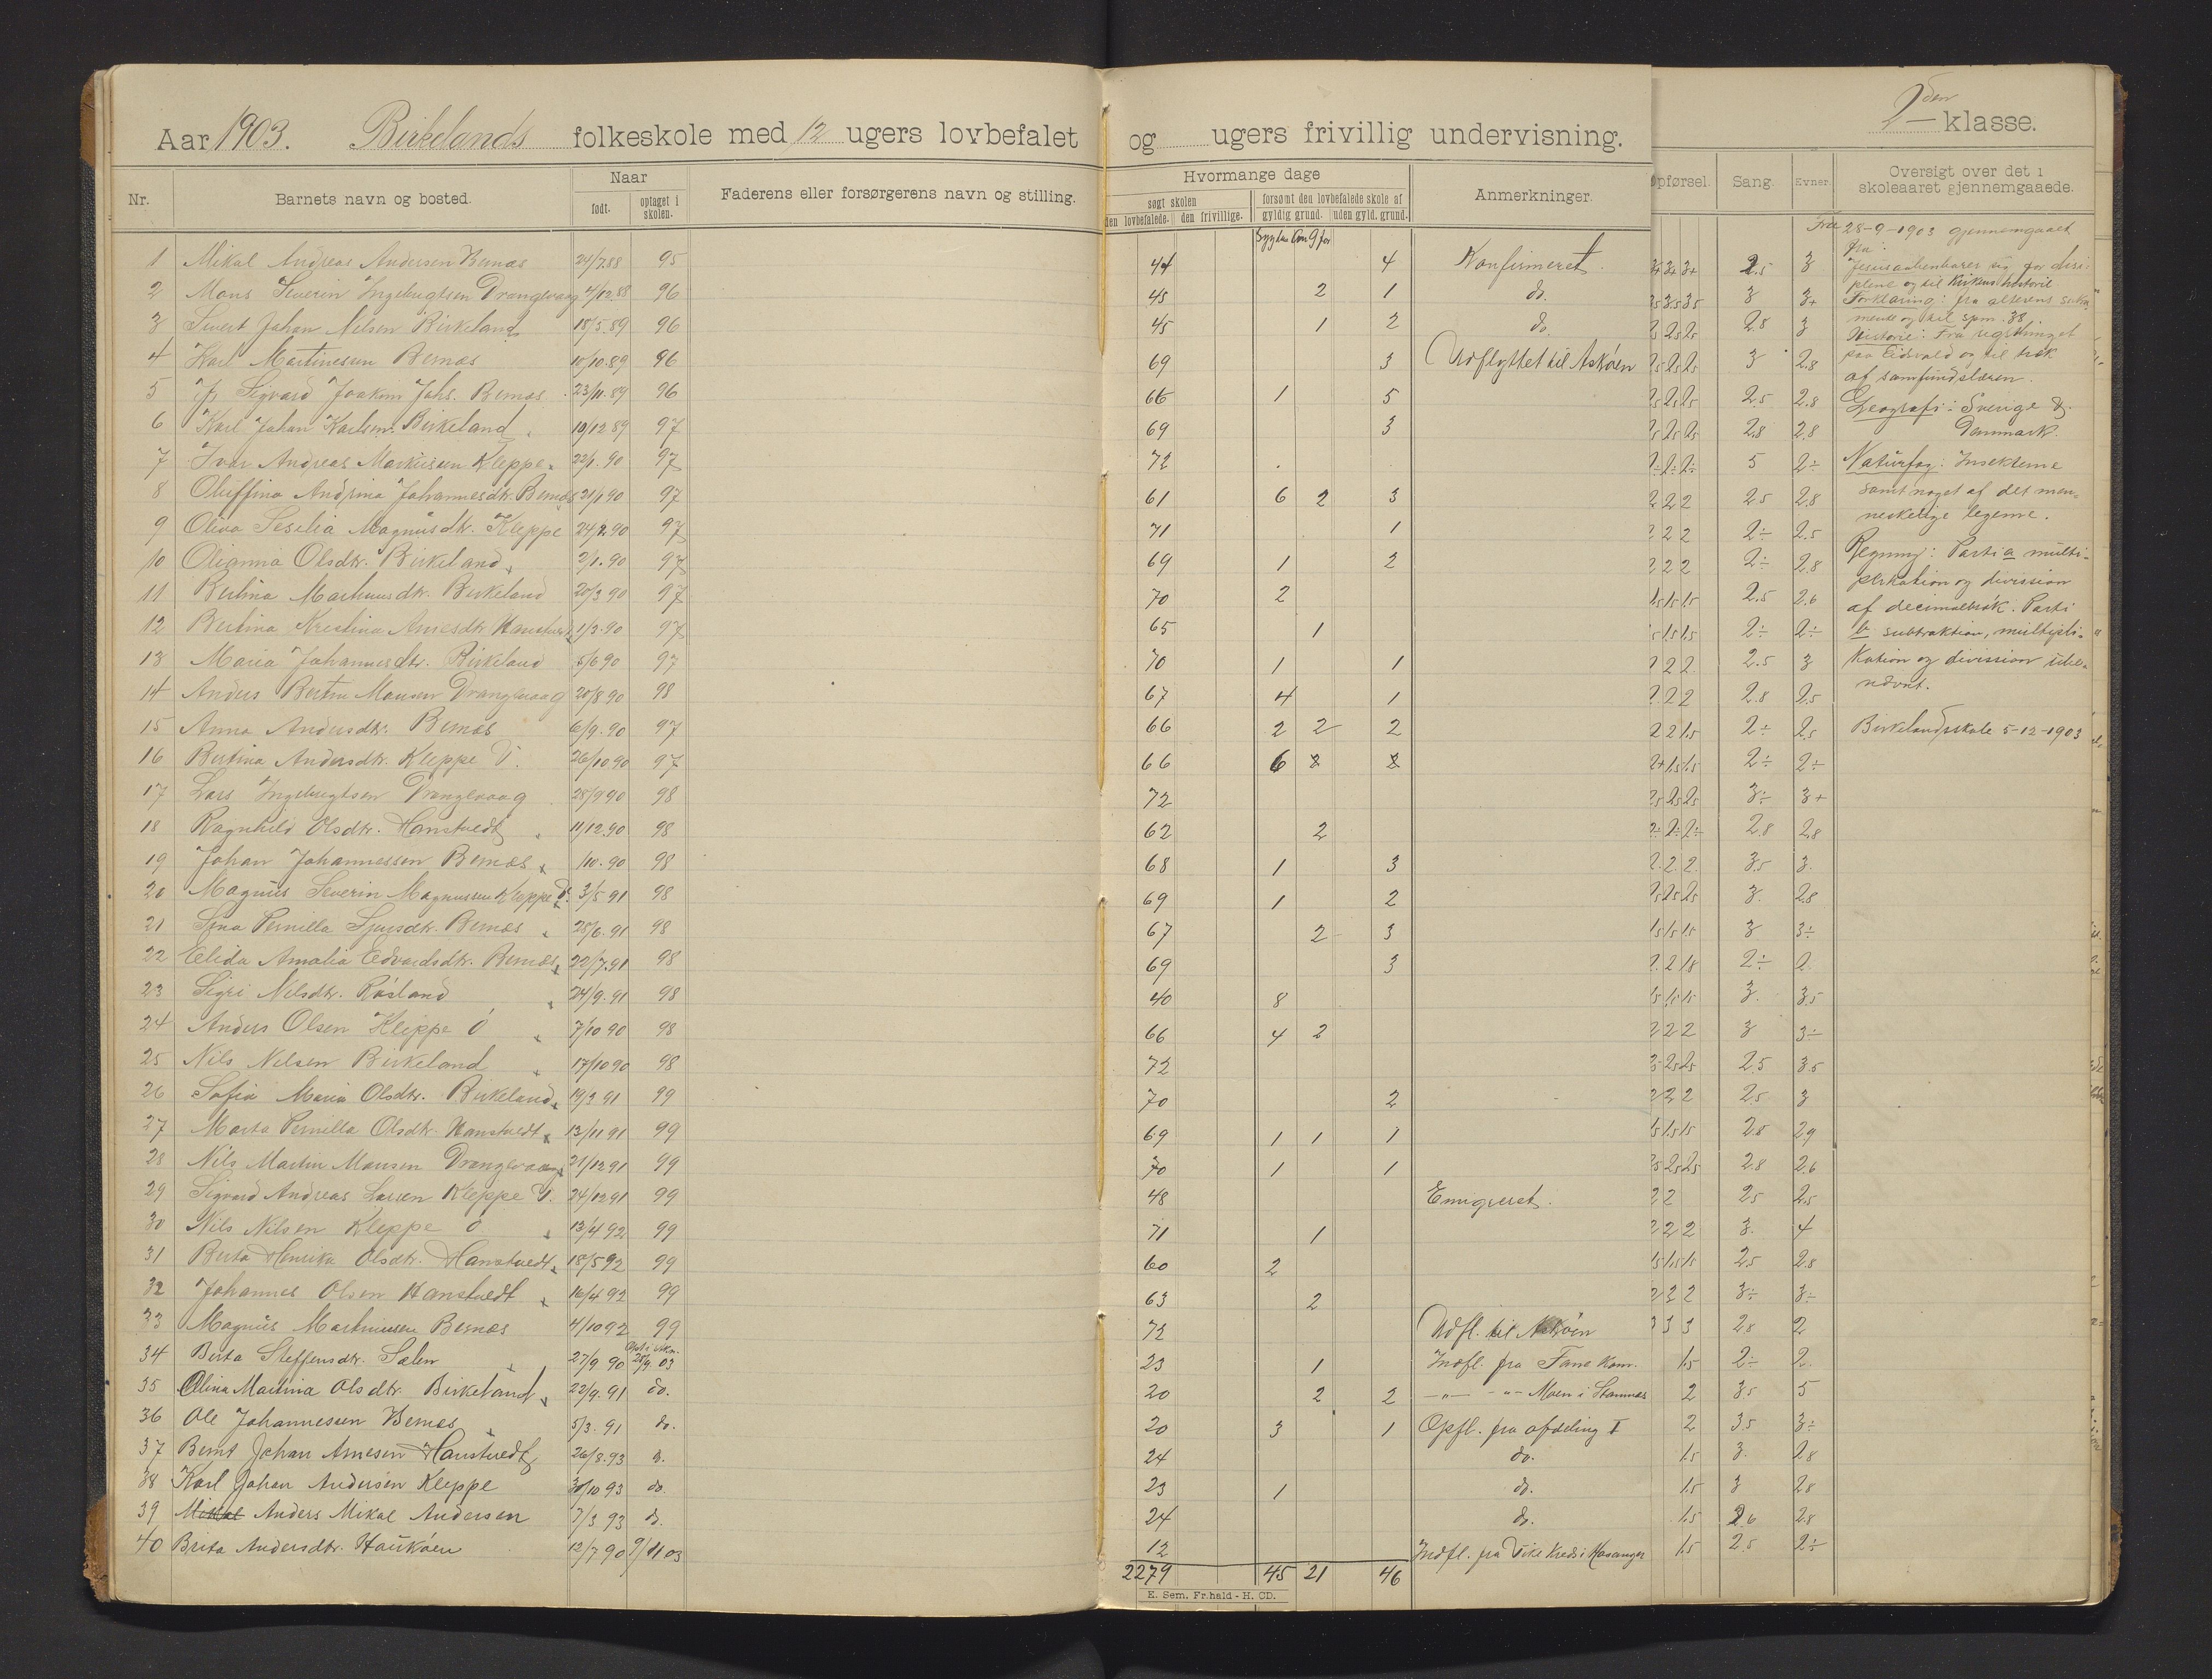 Aar 1903. Birkelands folkeskole med 12 ugers lovbefalet og ugers frivillig undervisning.
2den klasse.
Nr. Barnets navn og bosted. Naar født. optaget i skolen. Faderens eller forsørgerens navn og stilling. Hvormange dage søgt skolen den lovbefalede. den frivillige. forsømt den lovbefalede skole af gyldig grund. uden gyld. grund. Anmerkninger. Opførsel. Sang. Evner. Oversigt over det i skoleaaret gjennemgaaede.
1 Mikal Andreas Andersen Bernæs 24/7.88 95 44 4 Konfirmeret. 3+ 3+ 3+ 2.5 3
2 Mons Severin Ingebrigtsen Drangevaag 4/12.88 96 45 2 1 do. 3 3+
3 Sivert Johan Nilsen Birkeland 18/5.89 96 45 1 2 do. 2.8 3
4 Karl Martinessen Bernæs 10/10.89 96 69 3 Udflyttet til Askøen 3 2.8
5 Sigvard Joakim Johs. Bernæs 23/11.89 96 66 1 5 2.5 2.8
6 Karl Johan Karlsen Birkeland 10/12 89 97 69 3 2.8 2.8
7 Ivar Andreas Markussen Kleppe 22/1.90 97 72 5 2÷
8 Oluffina Andrina Johannesdtr. Bernæs 21/1 90 97 61 6 2 3 2 2 2 2.5 2.8
9 Oliva Sesilia Magnusdtr. Kleppe 24/2.90 97 71 1 2 2 2 2÷ 2.5
10 Olianna Olsdtr. Birkeland 2/1.90 97 69 1 2 2 2 2 2÷ 2.8
11 Bertina Markusdtr. Birkeland 20/3 90 97 70 2 1.5 1.5 1.5 2.5 2.6
12 Bertina Kristina Arnesdtr. Hanstvedt 1/3.90 97 65 1 1.5 1.5 2÷ 2÷
13 Maria Johannesdtr. Birkeland 5/6 90 97 70 1 1 2 2 2.5 3
14 Anders Bertin Monsen Drangevaag 20/8 90 98 67 4 1 2 2 2 2.8 2.5
15 Anna Andersdtr. Bernæs 6/9.90 97 66 2 2 2 2 2 1.5 2÷ 2.5
16 Bertina Andersdtr. Kleppe 26/10 90 97 66 6 2 2 2+ 1.5 1.5 2÷ 2÷
17 Lars Ingebrigtsen Drangevaag 28/9 90 98 72 3÷ 3+
18 Ragnhild Olsdtr. Hanstvedt 11/12.90 98 62 2 2÷ 2÷ 2÷ 2.8 2.8
19 Johan Johannessen Bernæs /10.90 98 68 1 3 2. 2. 2. 3.5 3.
20 Magnus Severin Magnussen Kleppe 3/5 91 98 69 1 2 3. 2.8
21 Pernilla Sjursdtr. Bernæs 28/6.91 98 67 2 3 1.5 1.5 1.5 3 3÷
22 Elida Amalia Edvardsdtr. Bernæs 22/7.91 98 69 3 2. 2 1.8 2÷ 2
23 Sigri Nilsdtr. Røsland 24/9.91 98 40 8 3. 3.5
24 Anders Olsen Kleppe 7/10 90 98 66 4 2 2 2 2 3 3÷
25 Nils Nilsen Birkeland 17/10 90 98 72 2.5 3.5
26 Sofia Maria Olsdtr. Birkeland 19/3 91 99 70 2 2 2 2 2.5 3
27 Marta Pernilla Olsdtr. Hanstvedt 13/11 91 99 69 1 1 1 1.5 1.5 1.5 2.8 2.9
28 Nils Martin Monsen Drangevaag 21/12 91 99 70 1 1 2.8 2.6
29 Sigvard Andreas Larsen Kleppe 24/12 91 99 48 Emigreret. 2 2 2.5 2.5
30 Nils Nilsen Kleppe 13/4 92 99 71 1 2 2 2 3. 4
31 Berta Henrika Olsdtr. Hanstvedt 18/5 92 99 60 2 1.5 1.5 1.5 2.5 2.8
32 Johannes Olsen Hanstvedt 16/4 92 99 63 2 2 2 2 3÷ 3÷
33 Magnus Martinussen Bernæs 4/10 92 99 72 Udfl. til Askøen 3 3 3 2.8 2
34 Berta Steffensdtr. Sælen 27/9 90 28/9 03 23 1 Indfl. fra Fane Kom. 1.5 2÷ 2
35 Olina Martina Olsdtr. Birkeland 22/9.91 do. 20 2 2 —"— -"- Moen i Stamnæs 2 3.5 5
36 Ole Johannessen Bernæs 5/3.91 do. 20 3 1 Opfl. fra afdeling I 2 3.5 3÷
37 Bernt Johan Arnesen Hanstvedt 26/8.93 do. 24 do. 1.5 3. 2.8
38 Karl Johan Andersen Kleppe 30/10 93 do. 23 1 do. 1.5 3 2.8
39 Mikal Anders Mikal Andersen 7/3 93 do. 24 do. 1.5 2.6 2.8
40 Brita Andersdtr. Haukøen 12/7 90 9/11 03 12 Indfl. fra Kreds i Hosanger 1.5 2.5 2÷
2279 45 21 46
E. Sem, Fr.hald - H. CD.
Fra 28-9-1903 gjennemgaaet
fra:
Jesus aabenbarer sig for disi-
plene og til Kirkens historie
Forklaring: fra alterens sakra-
mente og til spm. 38
Historie: Fra
paa Eidsvold og til
af samfundslæren.
Geografi: Sverige &
Danmark.
Naturfag: Insekterne
samt noget af det men-
neskelige legeme.
Regning: Parti a multi-
plikation og division
af decimalbrøk. Parti
b subtraktion, multipli-
kation og division
Birkelandsskole 5-12-1903